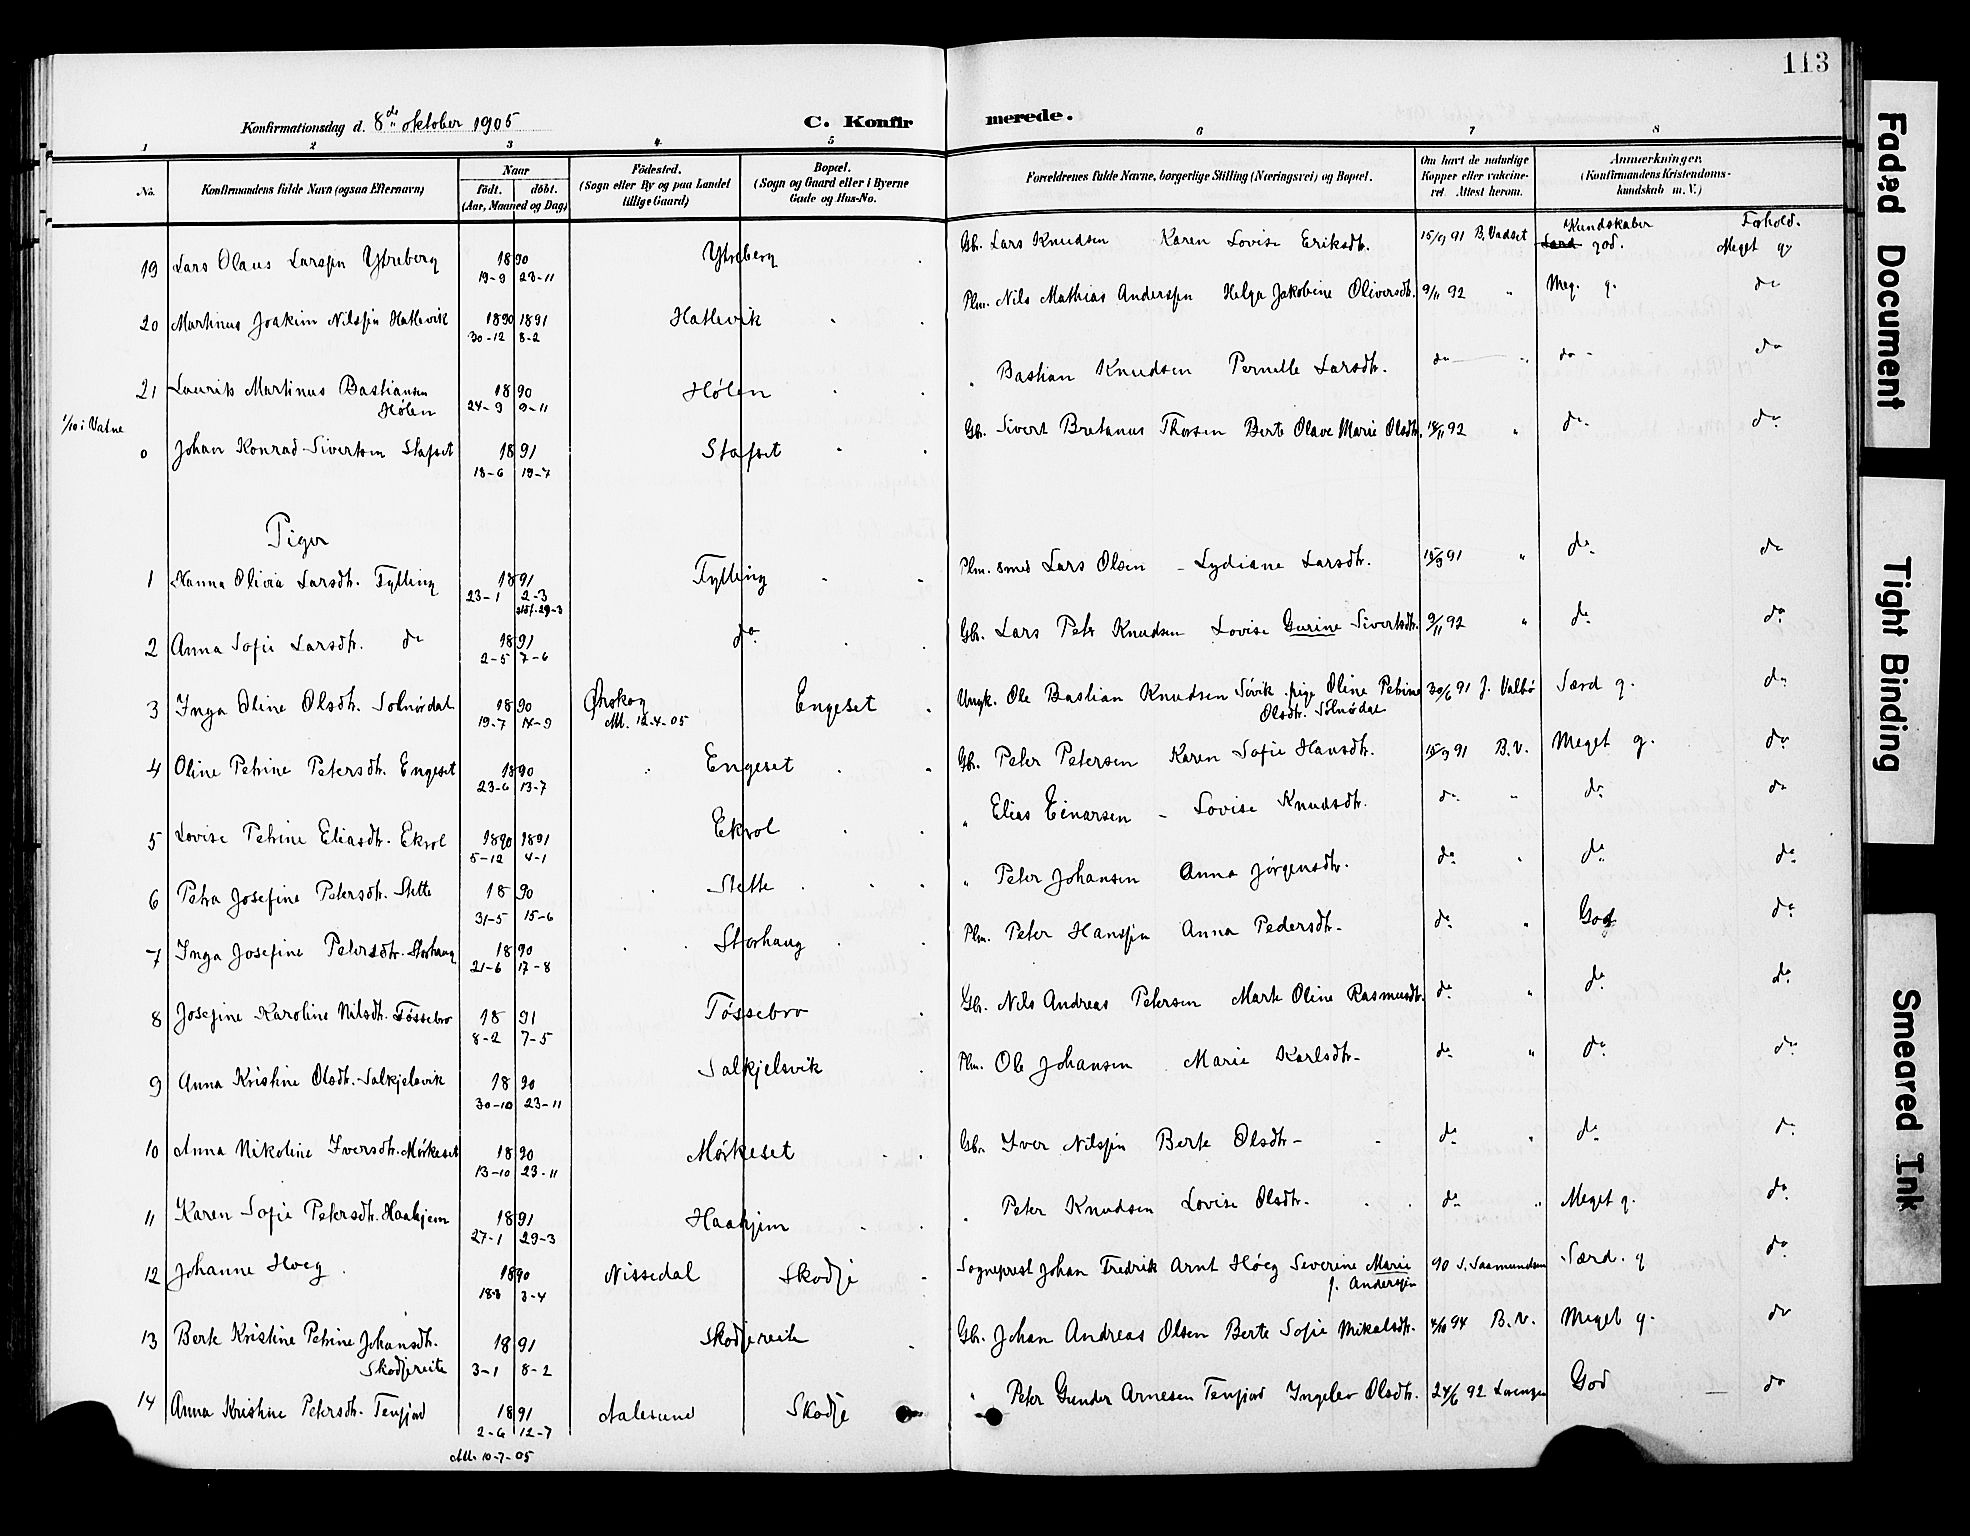 113
Konfirmationsdag d. 8de oktober 1905 C. Konfirmerede.
1 2 3 4 5 6 7 8
No. Konfirmandens fulde Navn (ogsaa Efternavn) Naar født. døbt. (Aar, Maaned og Dag) Fødested. (Sogn eller By og paa Landet tillige Gaard) Bopæl. (Sogn og Gaard eller i Byerne Gade og Hus-No. Forældrenes fulde Navne, borgerlige Stilling (Næringsvei) og Bopæl. Om havt de naturlige Kopper eller vakcineret Attest herom. Anmærkninger. (Konfirmandens Kristendomskundskab m. V.)
Kundskaber Forhold.
19 Lars Olaus Larssen Ytreberg 1890 19-9 23-11 Ytreberg Gb. Lars Knudsen Karen Lovise Eriksdtr. 15/9 91 B. Vadset god. Meget g
20 Martinus Joakim Nilssen Hatlevik 1890 1891 30-12 8-2 Hatlevik Plm. Nils Mathias Anderssen Helga Jakobine Oliversdtr. 9/11 92 " Meg. g. do
21 Laurits Martinus Bastiansen Hølen 1890 24-9 9-11 Hølen " Bastian Knudsen Pernille Larsdtr. do " do do
1/10 i Vatne
0 Johan Konrad Sivertsen Stafset 1891 18-6 19-7 Stafset Gb. Sivert Bretanus Thorsen Berte Olave Marie Olsdtr. 92 " do do
Piger
1 Nanna Olivia Larsdtr. Fylling 1891 23-1 2-3 29-3 Fylling Plm. smed Lars Olsen - Lydiane Larsdtr. 15/9 91 " do do
2 Anna Sofie Larsdtr. do 1891 2-5 7-6 do Gb. Lars Petr Knudsen Lovise Gurine Sivertsdtr. 9/11 92 " do do
3 Inga Oline Olsdtr. Solnørdal 1890 19-7 14-9 Ørskog Att. 12-4-05 Engeset Ungk. Ole Bastian Knudsen Søvik. pige Oline Petrine Olsdtr. Solnødal 30/6 91 J. Valbø Særd g. do
4 Oline Petrine Petersdtr. Engeset 1890 23-6 13-7 Engeset Gb. Peter Petersen Karen Sofie Hansdtr. 15/9 91 B.V. Meget g. do
5 Lovise Petrine Eliasdtr. Ekrol 1890 1891 5-12 4-1 Ekrol " Elias Einarsen - Lovise Knudsdtr. do " do do
6 Petra Josefine Petersdtr. Stette 1890 31-5 15-6 Stette " Peter Johansen Anna Jørgensdtr. do " do do
7 Inga Josefine Petersdtr. Storhaug 1890 21-6 17-8 Storhaug Plm. Peter Hanssen Anna Pedersdtr. do " God do
8 Josefine Karoline Nilsdtr. Tøssebro 1891 8-2 7-5 Tøssebro Gb. Nils Andreas Petersen Marte Oline Rasmusdtr. do " do do
9 Anna Kristine Olsdtr. Salkjelsvik 1890 30-10 23-11 Salkjelsvik Plm. Ole Johansen Marie Karlsdtr. do " do do
10 Anna Nikoline Iversdtr. Mørkeset 1890 13-10 23-11 Mørkeset Gb. Iver Nilssen Berte Olsdtr. do " do do
11 Karen Sofie Petersdtr. Haahjem 1891 27-1 29-3 Haahjem " Peter Knudsen Lovise Olsdtr. do " Meget g. do
12 Johanne Hoeg 1890 3-4 Nissedal Skodje Sogneprest Johan Fredrik Arnt Høeg Severine Marie f. Anderssen 90 S. Saamundsen Særd. g do
13 Berte Kristine Petrine Johansdtr. Skodjereite 1891 3-1 8-2 Skodjereite Gb. Johan Andreas Olsen Berte Sofie Mikalsdtr. 94 B.V. Meget g. do
14 Anna Kristine Petersdtr. Tenfjord 1891 2-6 12-7 Aalesund Skodje " Peter Gunder Arnesen Tenfjord Ingelev Olsdtr. 24/6 92 God do
Att. 10-7-05
Faded Document
Tight Binding
Smeared Ink